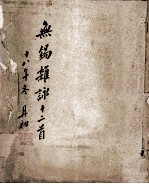 無錫雜詠十二首
十八年冬 具初